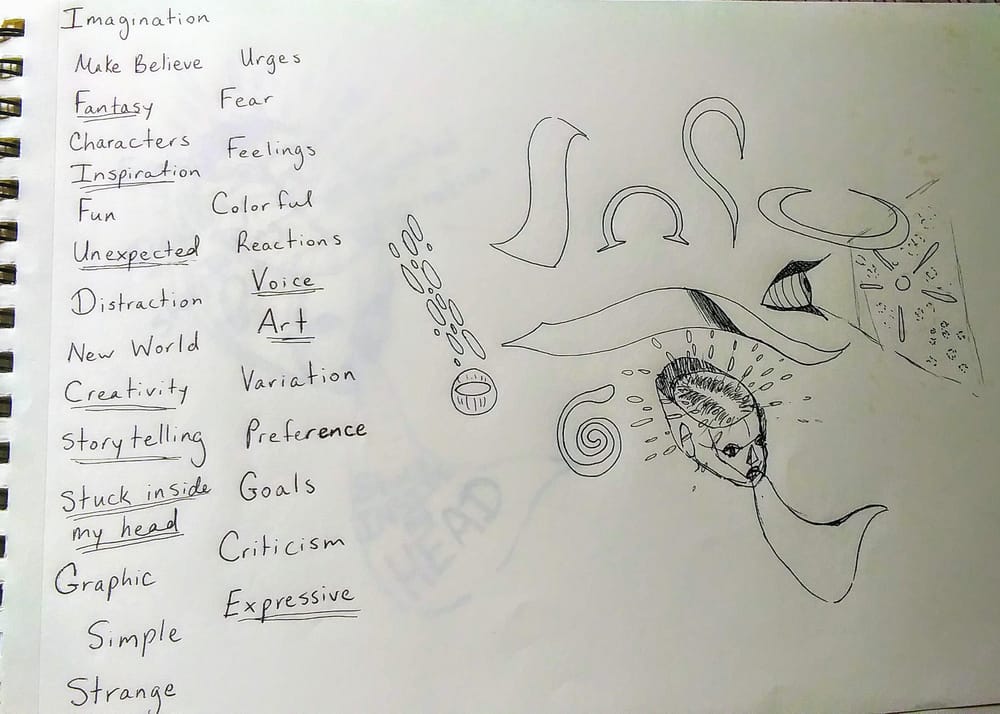 Imagination
Make Believe
Fantasy
Characters
Inspiration
Fun
Unexpected
Distraction
New World
Creativity
Storytelling
Stuck inside
my head
Graphic
Simple
Strange
Urges
Fear
Feelings
Colorful
Reactions
Voice
Art
Variation
Preference
Goals
Criticism
Expressive
HEAD